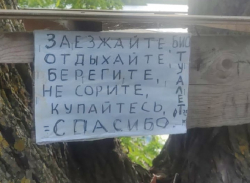 ЗАЕЗЖАЙТЕ,
ОТДЫХАЙТЕ,
БЕРЕГИТЕ,
НЕ СОРИТЕ,
КУПАЙТЕСЬ,
=СПАСИБО.
ТУАЛЕТ